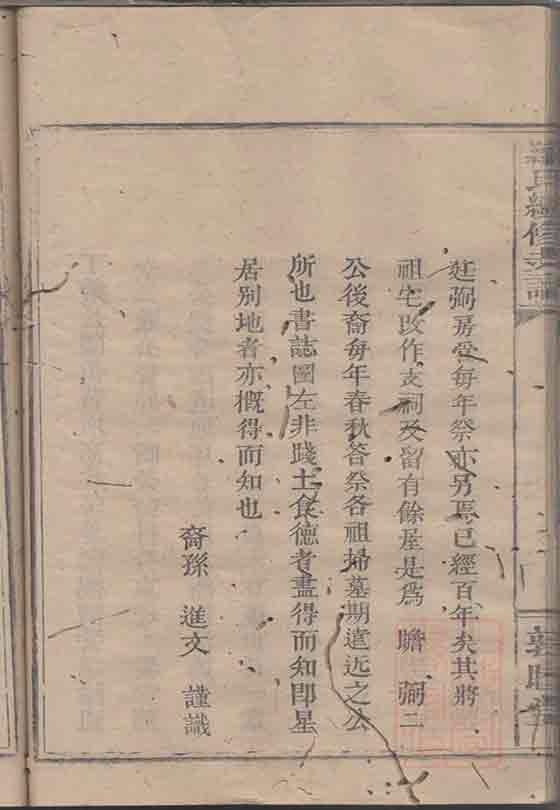 氏續修支譜
廷弼房受每年祭亦另焉已經百年矣其將
祖宅改作支祠及留有餘屋是爲 瞻 弼二
公後裔每年春秋答祭各祖掃墓期遠近之公
所也書誌圖左非踐土食德者盡得而知即星
居別地者亦概得而知也
裔孫 進文 謹識